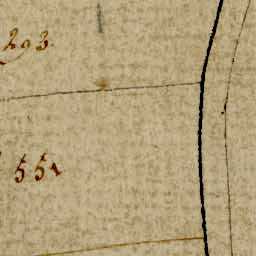 293.
551